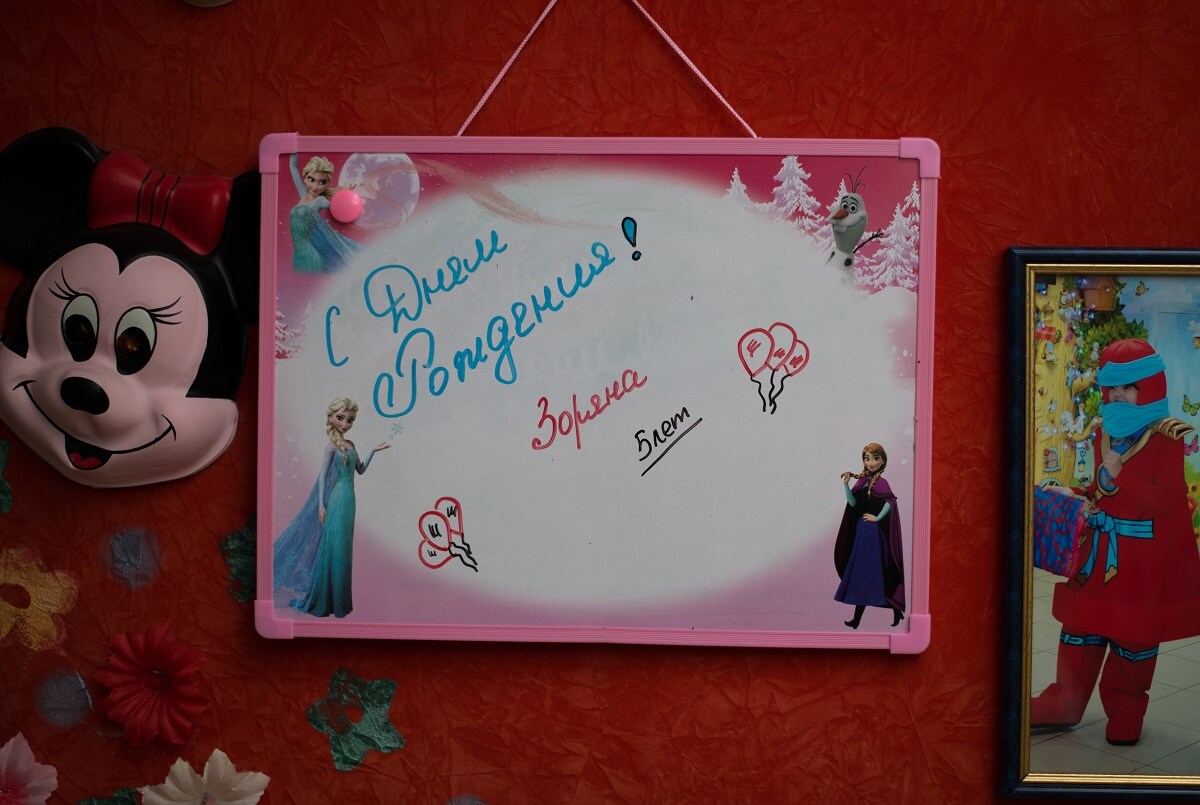 С Днём
Рождения!
Зоряна
5 лет